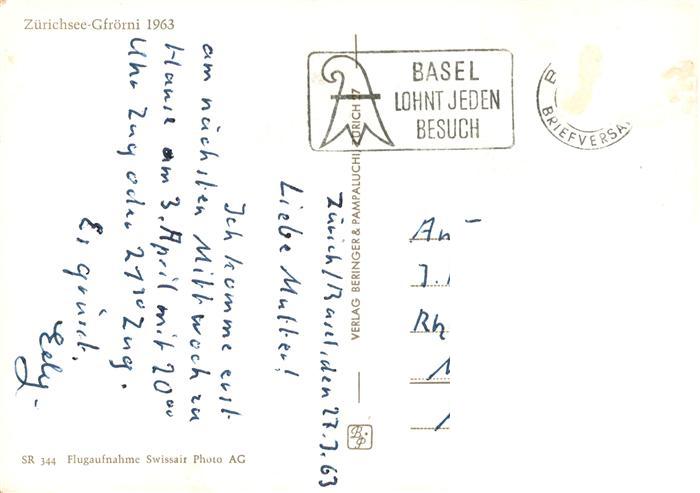 Zürichsee-Gfrörni 1963
BASEL
LOHNT JEDEN
BESUCH
BRIEFVERSA
Zürich/Basel, den 27.3.63
Liebe Mutter!
Ich komme erst
am nächsten Mittwoch zu
Hause am 3. April mit 20⁰⁰
Uhr Zug oder 21³⁰ Zug.
Es grüsst.
VERLAG BERINGER & PAMPALUCHI, ZÜRICH 47
An
J.
Rh
SR 344 Flugaufnahme Swissair Photo AG